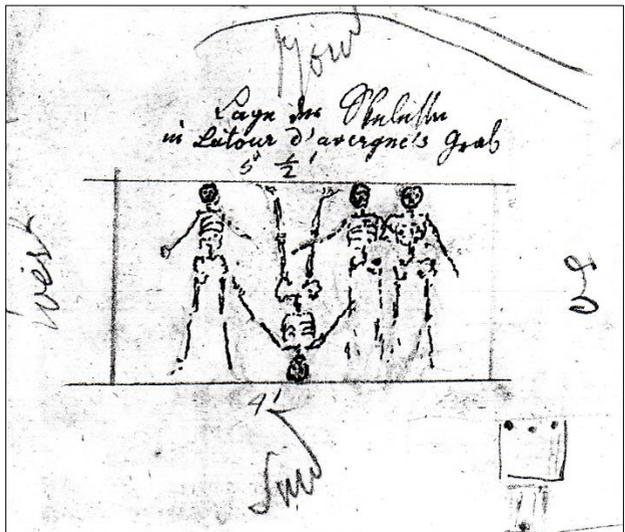 Nord
Lage der Skelette
in Latour d'avergne's Grab
5 1/2'
West
Ost
4'
Süd